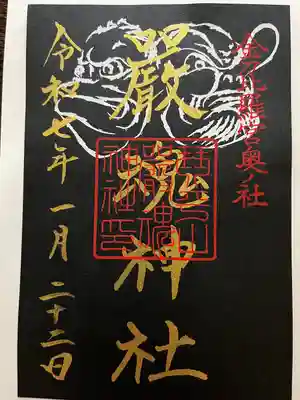 金比羅宮奥社
嚴魂神社
令和七年一月二十二日